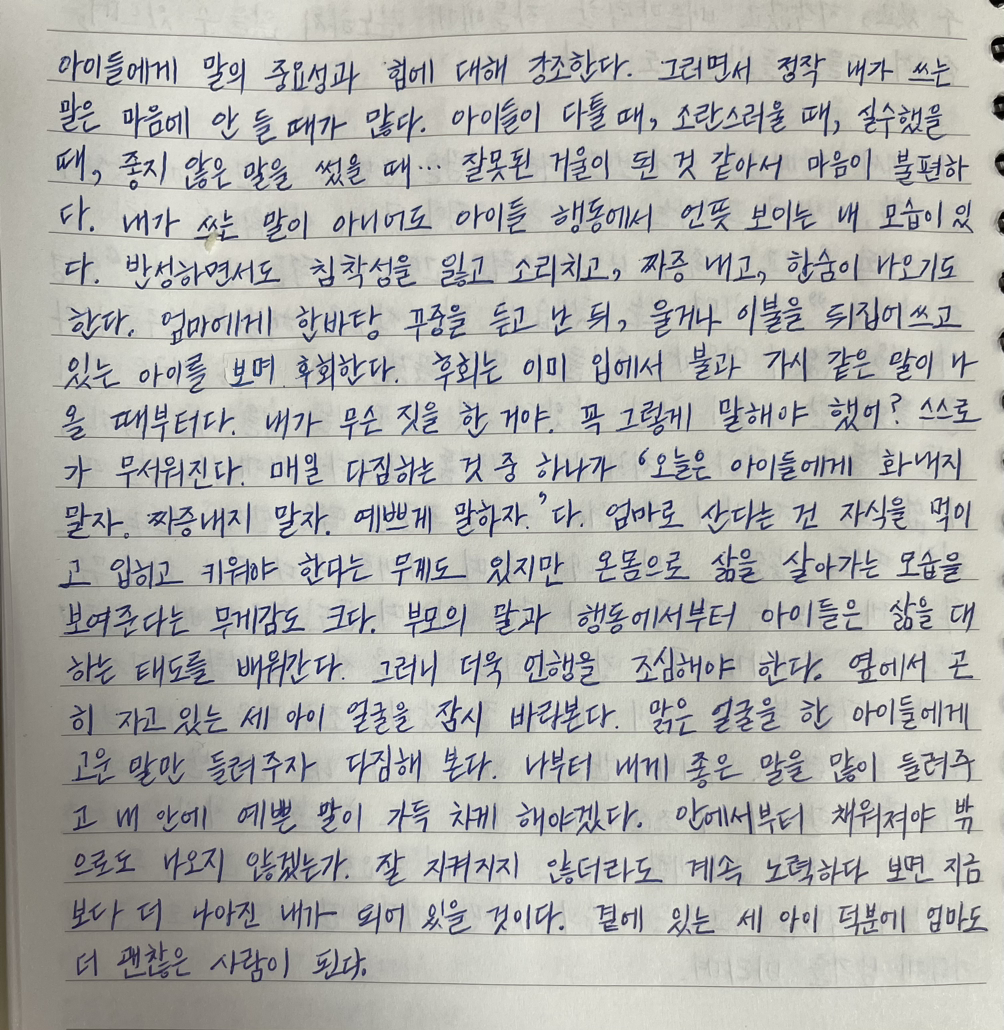 아이들에게 말의 중요성과 힘에 대해 강조한다. 그러면서 정작 내가 쓰는
말은 마음에 안 들 때가 많다. 아이들이 다툴 때, 소란스러울 때, 실수했을
때, 좋지 않은 말을 썼을 때… 잘못된 거울이 된 것 같아서 마음이 불편하
다. 내가 쓰는 말이 아니어도 아이들 행동에서 언뜻 보이는 내 모습이 있
다. 반성하면서도 침착성을 잃고 소리치고, 짜증 내고, 한숨이 나오기도
한다. 엄마에게 한바탕 꾸중을 듣고 난 뒤, 울거나 이불을 뒤집어쓰고
있는 아이를 보며 후회한다. 후회는 이미 입에서 불과 가시 같은 말이 나
올 때부터다. 내가 무슨 짓을 한 거야. 꼭 그렇게 말해야 했어? 스스로
가 무서워진다. 매일 다짐하는 것 중 하나가 ‘오늘은 아이들에게 화내지
말자. 짜증내지 말자. 예쁘게 말하자.’다. 엄마로 산다는 건 자식을 먹이
고 입히고 키워야 한다는 무게도 있지만 온몸으로 삶을 살아가는 모습을
보여준다는 무게감도 크다. 부모의 말과 행동에서부터 아이들은 삶을 대
하는 태도를 배워간다. 그러니 더욱 언행을 조심해야 한다. 옆에서 곤
히 자고 있는 세 아이 얼굴을 잠시 바라본다. 맑은 얼굴을 한 아이들에게
고운 말만 들려주자 다짐해 본다. 나부터 내게 좋은 말을 많이 들려주
고 내 안에 예쁜 말이 가득 차게 해야겠다. 안에서부터 채워져야 밖
으로도 나오지 않겠는가. 잘 지켜지지 않더라도 계속 노력하다 보면 지금
보다 더 나아진 내가 되어 있을 것이다. 곁에 있는 세 아이 덕분에 엄마도
더 괜찮은 사람이 된다.